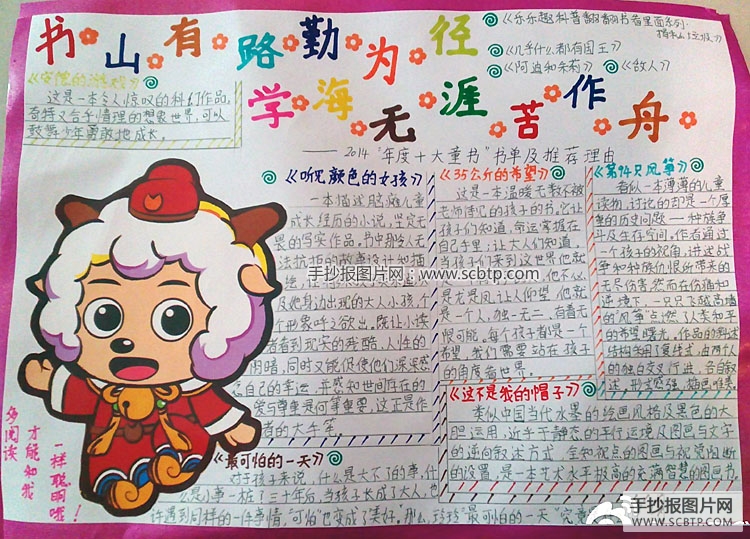 书山有路勤为径
学海无涯苦作舟
——2014"年度十大童书"书单及推荐理由
《乐乐趣科普翻翻书看里面系列·
《几乎什么都有国王》
《阿迪和朱莉》
《敌人》
《安德的游戏》
这是一本令人惊叹的科幻作品,
奇特又合乎情理的想象世界,可以
鼓舞少年勇敢地成长。
《听见颜色的女孩》
一本描述脑瘫儿童
成长经历的小说,坚定无
畏的写实作品。书中那令人无
法抗拒的故事设计和描
及她身边出现的大人小孩,个
个形象呼之欲出。既让小读
者看到现实的残酷、人性的
困暗,同时又能促使他们深深感
自己的幸运,并感知世间存在的
爱与尊重是何等重要,这正是作
者的大手笔
《35公斤的希望》
这是一本温暖无数不被
老师待见的孩子的书。它让
孩子们知道,命运掌握在
自己手里;让大人们知道,
当孩子们来到这世界他就
他不必
是龙是凤,让人仰望,他就
是一个人,独一无二,有着无
限可能。每个孩子都是一个
希望,我们需要站在孩子
的角度看世界
《第94只风筝》
看似一本薄薄的儿童
读物,讨论的却是一个厚
重的历史问题——种族争
斗及生存空间。作者通过
一个孩子的视角,讲述战
争和种族仇恨所带来的
无尽伤害。然而在伤痛和
逆境下,一只只飞越高墙
的风筝点燃了人类和平
的希望曙光。作品的叙述
结构采用了复线式,由两个人
的独白交叉行进,各自叙
述,形式紧张,特色唯美
《这不是我的帽子》
类似中国当代水墨的绘画风格及黑色的大
胆运用,近乎于静态的平行运境及图画与文字
的逆向叙述方式,全知视点的图画与视觉判断
的设置,是一本艺术水平极高的充满智慧的图画书。
《最可怕的一天》
对于孩子来说,什么是大不了的事,什
么是小事一桩?三十年后,当孩子长成了大人,也
许遇到同样的一件事情,"可怕"也变成了"美好"。那么,珍珍"最可怕的一天"究竟
多阅读
才能如我
一样聪明哦!
手抄报图片网:www.scbtp.com
手抄报图片网
WWW.SCBTP.COM